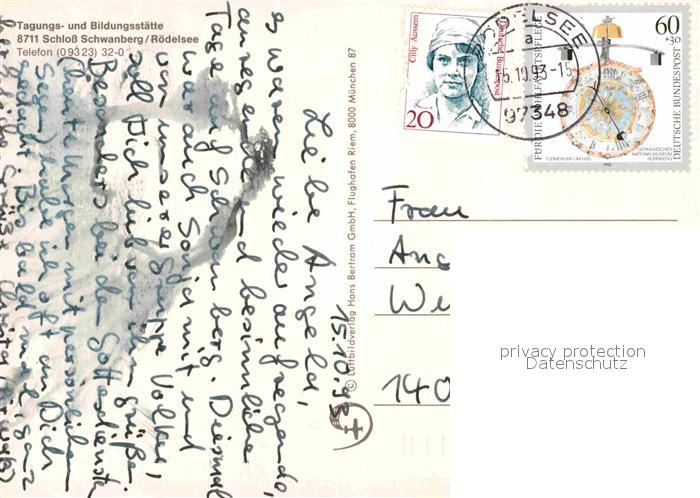 Tagungs- und Bildungsstätte
8711 Schloß Schwanberg/Rödelsee
Telefon (0 93 23) 32-0
15.10.93
Liebe Angela,
waren wieder aufregende,
anregende und besinnliche
Tage auf Schwanberg. Diesmal
war auch Sonja mit und
von unserer Gruppe Volker,
soll Dich lieb von ihm grüßen.
Besonders bei de Gottesdiensten
(heute Morgen mit persönlichem
Segen) habe ich oft an Dich
gedacht. Bis bald mal, ganz
herzliche Grüße
© Luftbildverlag Hans Bertram GmbH, Flughafen Riem, 8000 München 87
Cilly Aussem
Deutsche Bundespost
20
RÖDELSEE
a
15.10.93-15
97348
FÜR DIE WOHLFAHRTSPFLEGE
60
+30
DEUTSCHE BUNDESPOST
GERMANISCHES
NATIONALMUSEUM
NÜRNBERG
TÜRMERUHR UM 1400
Frau
140
privacy protection
Datenschutz